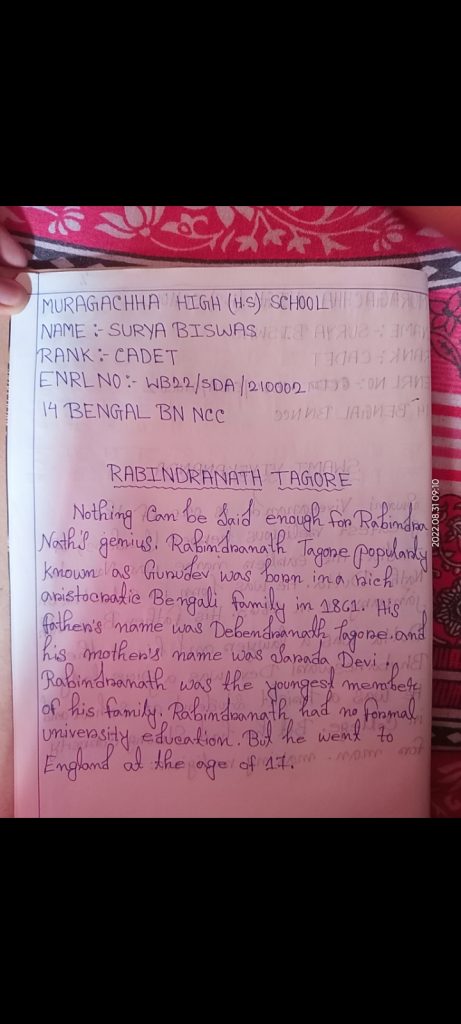 MURAGACHHA HIGH (H.S) SCHOOL
NAME :- SURYA BISWAS
RANK :- CADET
ENRL NO :- WB22/SDA/210002
14 BENGAL BN NCC
RABINDRANATH TAGORE
Nothing Can be Said enough for Rabindra
Nath's genius. Rabindranath Tagore popularly
known as Gurudev was born in a rich
aristocratic Bengali family in 1861. His
father's name was Debendranath Tagore. and
his mother's name was Sarada Devi.
Rabindranath was the youngest member
of his family. Rabindranath had no formal
university education. But he went to
England at the age of 17.
2022.08.31 09:10